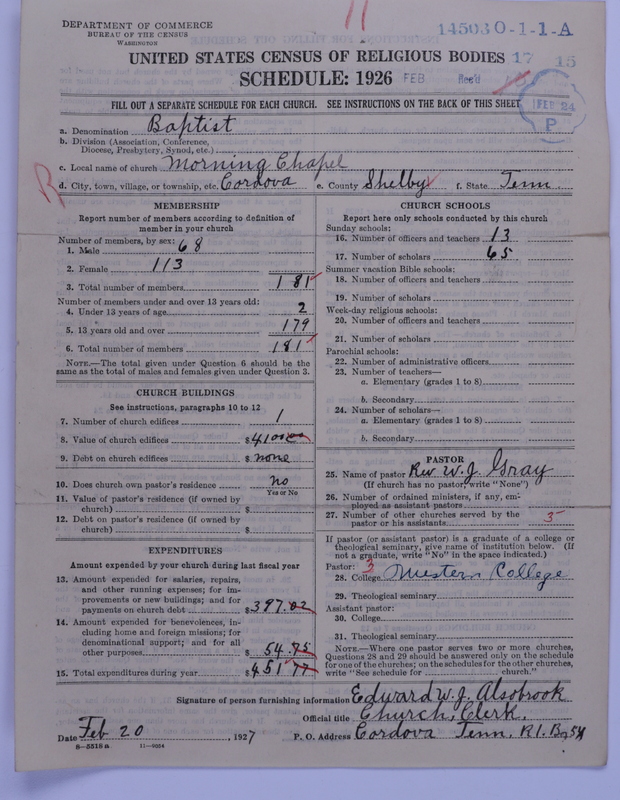 11
DEPARTMENT OF COMMERCE
BUREAU OF THE CENSUS
WASHINGTON
145030-1-1-A
UNITED STATES CENSUS OF RELIGIOUS BODIES 17 15
SCHEDULE: 1926 FEB Rec'd
FILL OUT A SEPARATE SCHEDULE FOR EACH CHURCH. SEE INSTRUCTIONS ON THE BACK OF THIS SHEET
FEB 24
P
a. Denomination Baptist
b. Division (Association, Conference,
Diocese, Presbytery, Synod, etc.)
c. Local name of church Morning Chapel
R
d. City, town, village, or township, etc. Cordova e. County Shelby f. State Tenn.
MEMBERSHIP
Report number of members according to definition of
member in your church
Number of members, by sex:
1. Male 68
2. Female 113
3. Total number of members 181
Number of members under and over 13 years old:
4. Under 13 years of age 2
5. 13 years old and over 179
6. Total number of members 181
NOTE.—The total given under Question 6 should be the
same as the total of males and females given under Question 3.
CHURCH BUILDINGS
See instructions, paragraphs 10 to 12
7. Number of church edifices 1
8. Value of church edifices $4100.00
9. Debt on church edifices $ none
10. Does church own pastor's residence no
Yes or No
11. Value of pastor's residence (if owned by
church) $
12. Debt on pastor's residence (if owned by
church) $
EXPENDITURES
Amount expended by your church during last fiscal year
13. Amount expended for salaries, repairs,
and other running expenses; for im-
provements or new buildings; and for
payments on church debt $397.02
14. Amount expended for benevolences, in-
cluding home and foreign missions; for
denominational support; and for all
other purposes $ 54.75
15. Total expenditures during year $451.77
CHURCH SCHOOLS
Report here only schools conducted by this church
Sunday schools:
16. Number of officers and teachers 13
17. Number of scholars 65
Summer vacation Bible schools:
18. Number of officers and teachers
19. Number of scholars
Week-day religious schools:
20. Number of officers and teachers
21. Number of scholars
Parochial schools:
22. Number of administrative officers
23. Number of teachers—
a. Elementary (grades 1 to 8)
b. Secondary
24. Number of scholars—
a. Elementary (grades 1 to 8)
b. Secondary
PASTOR
25. Name of pastor Rev W. J. Gray
(If church has no pastor, write "None")
26. Number of ordained ministers, if any, em-
ployed as assistant pastors
27. Number of other churches served by the
pastor or his assistants 3
If pastor (or assistant pastor) is a graduate of a college or
theological seminary, give name of institution below. (If
not a graduate, write "No" in the space indicated.)
Pastor: 3
28. College Western College
29. Theological seminary
Assistant pastor:
30. College
31. Theological seminary
NOTE.—Where one pastor serves two or more churches,
Questions 28 and 29 should be answered only on the schedule
for one of the churches; on the schedules for the other churches,
write "See schedule for church."
Signature of person furnishing information Edward W. J. Alsobrook
Official title Church, Clerk.
Date Feb 20, 1927 P. O. Address Cordova Tenn. R1. B 54
8—5518 a 11—9064